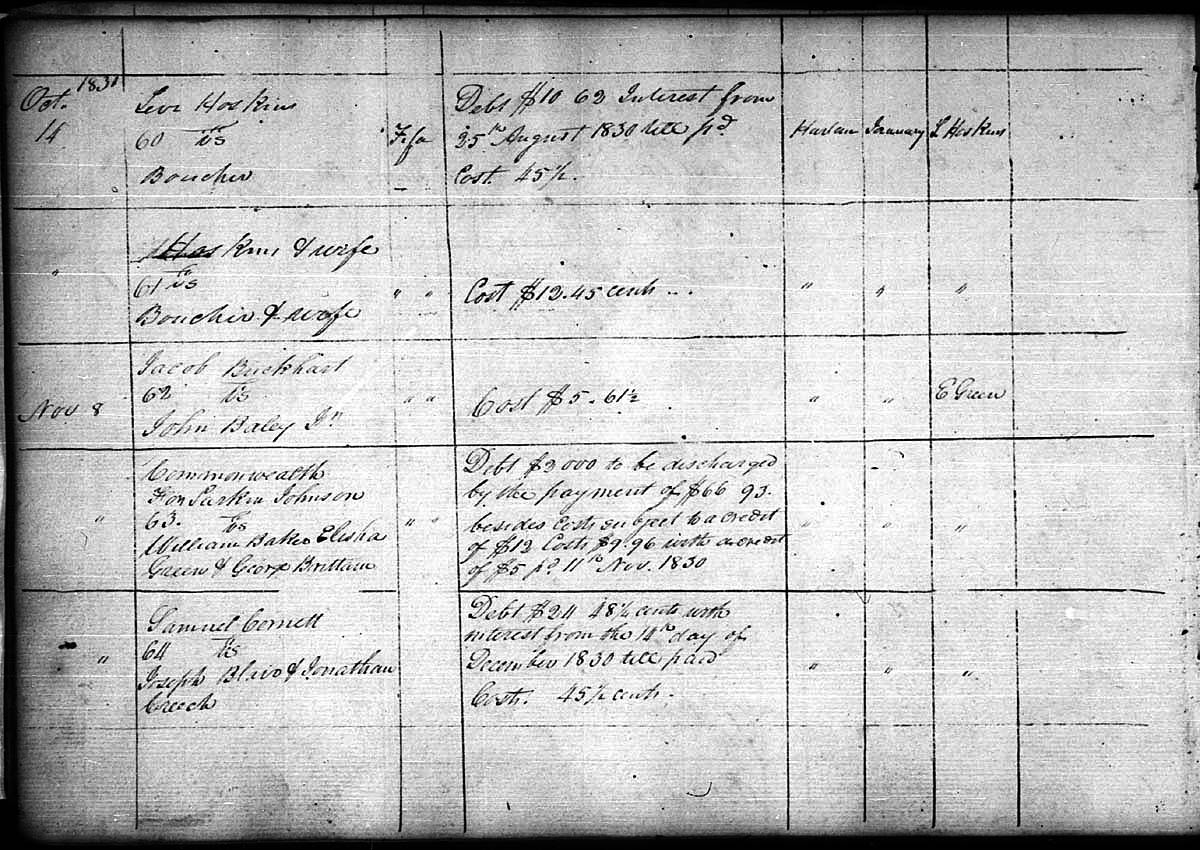 1831
Oct. Levi Hoskins Debt $10 62 Interest from
14 60 vs Fifa 25th August 1830 till pd Harlan January L Hoskins
Boucher Cost. 45½.
Hoskins & wife
" 61 vs " " Cost $12.45 cents " " "
Boucher & wife
Jacob Buckhart
62 vs " " Cost $5. 61½ " " E Green
Nov 8 John Baley Jr
Commonwealth Debt $3000 to be discharged
For Larkin Johnson by the payment of $66 93.
" 63. vs " " besides Costs subject to a credit " " "
William Baker Elisha of $12 Costs $9.96 with a credit
Green & George Brittain of $5 pd 11th Nov. 1830
Samuel Cornett Debt $24 48½ cents with
64 vs interest from the 14th day of
" Joseph & Jonathan December 1830 till paid " " "
Creech Costs. 45½ cents.